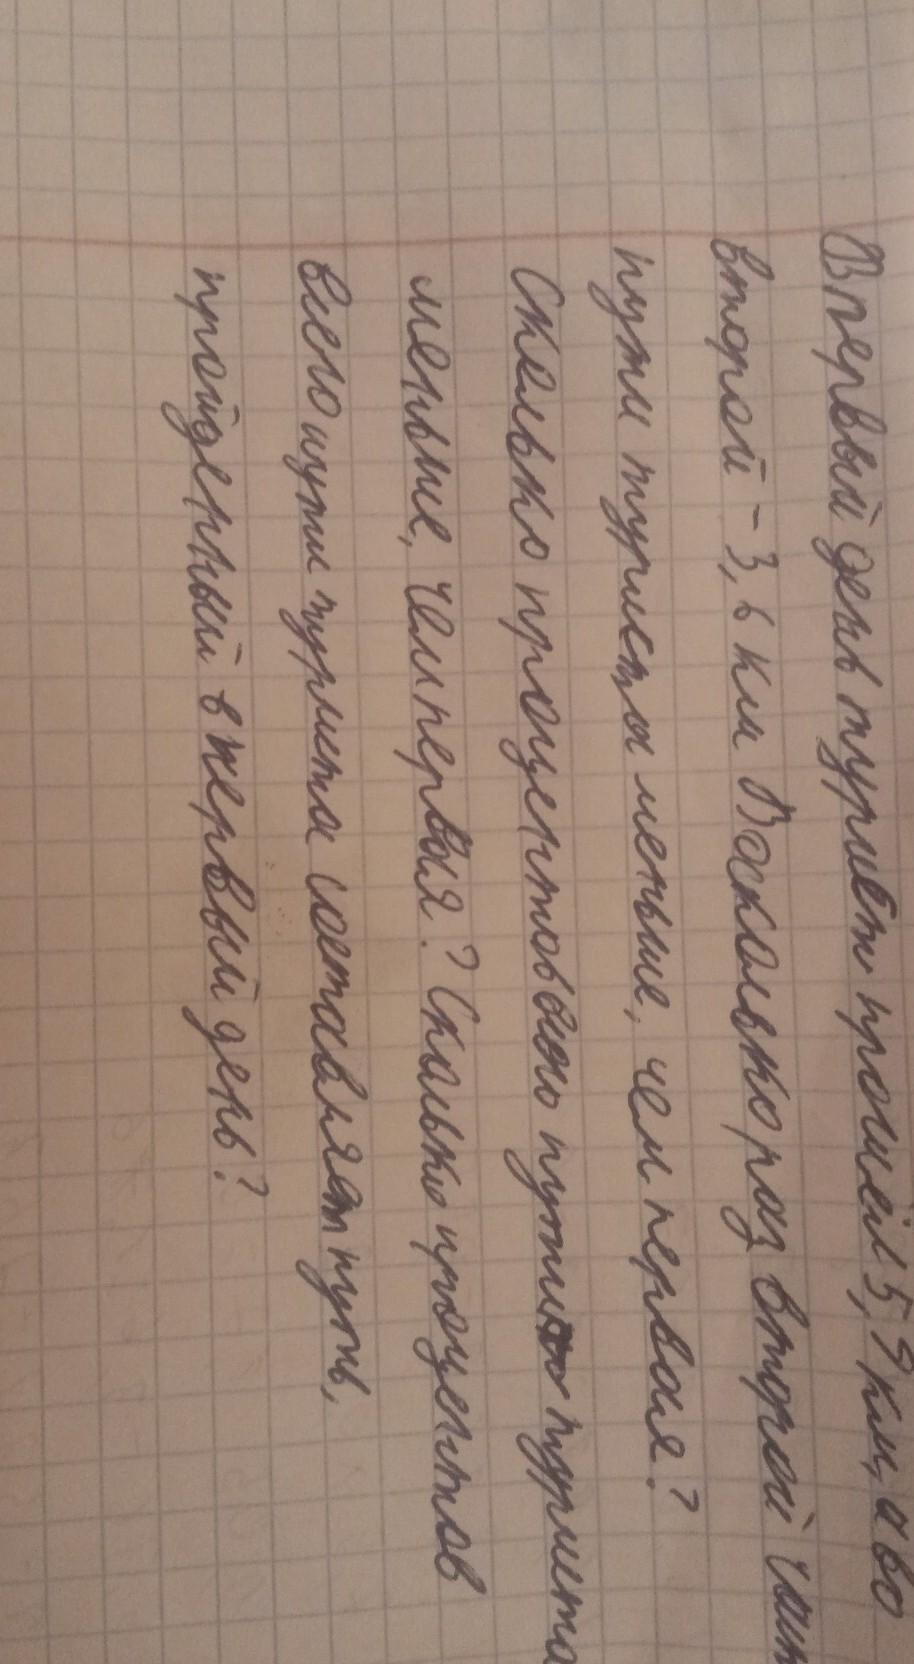 В первый день турист прошёл 5,9 км, а во
второй - 3,6 км Восколько раз второй част
пути туриста меньше, чем первая?
Сколько процентов всего пути туриста
меньше, чем первая? Сколько процентов
всего пути туриста составляет путь,
пройденный в первый день?